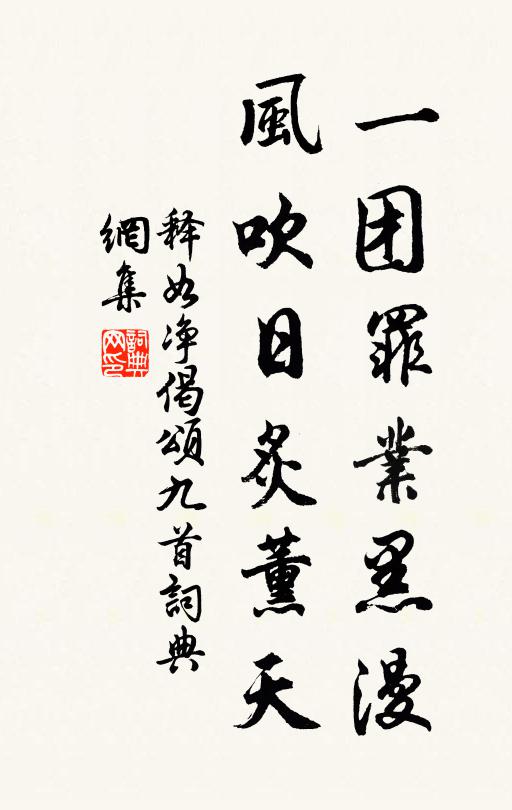 一团罪業黑漫
風吹日炙薰天
释如净偈頌九首詞典
網集
詞典
网印